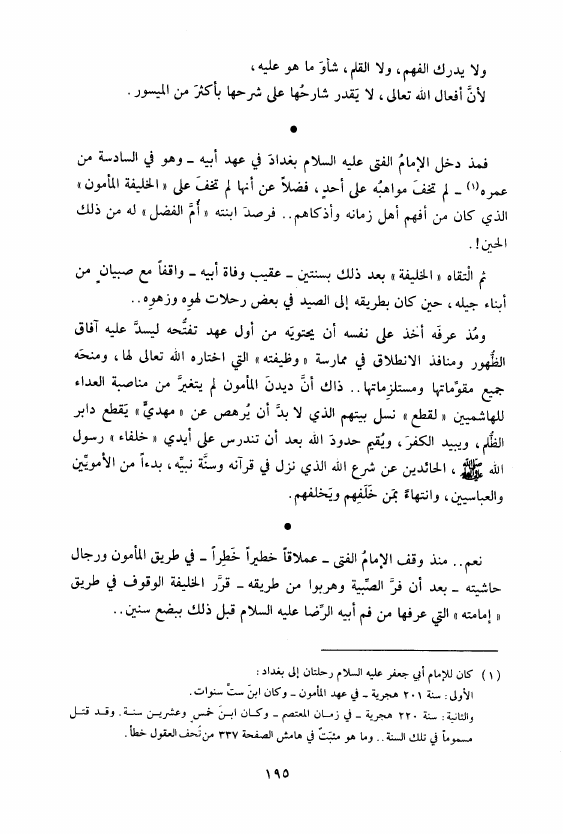 ولا يدرك الفهم، ولا القلم، شأوَ ما هو عليه،
لأنَّ أفعال الله تعالى، لا يَقدر شارحُها على شرحها بأكثرَ من الميسور.
●
فمذ دخل الإمامُ الفتى عليه السلام بغدادَ في عهد أبيه ــ وهو في السادسة من
عمره (١) ــ لم تخفَ مواهبُه على أحدٍ، فضلاً عن أنها لم تَخفَ على «الخليفة المأمون»
الذي كان من أفهم أهل زمانه وأذكاهم.. فرصدَ ابنته «أُمَّ الفضل» له من ذلك
الحين!.
ثم الْتقاه «الخليفة» بعد ذلك بسنتين ــ عقيب وفاة أبيه ــ واقفاً مع صبيان ٍ من
أبناء جيله، حين كان بطريقه إلى الصيد في بعض رحلات لهوِه وزهوِه..
ومُذ عرفَه أخذ على نفسه أن يحتويَه من أول عهد تفتُّحه ليسدَّ عليه آفاق
الظُّهور ومنافذ الانطلاق في ممارسة «وظيفته» التي اختاره الله تعالى لها، ومنحَه
جميع مقوِّماتها ومستلزماتها.. ذاك أنَّ ديدنَ المأمون لم يتغيرَّ من مناصبة العداء
للهاشميين «لقطع» نسل بيتهم الذي لا بدَّ أن يُرهص عن «مهديٍّ» يَقطع دابر
الظُّلم، ويبيد الكفرَ، ويُقيم حدودَ الله بعد أن تندرس على أيدي «خلفاء» رسول
الله ﷺ، الحائدين عن شرع الله الذي نزل في قرآنه وسنَّة نبيِّه، بدءاً من الأمويِّين
والعباسيين، وانتهاءً بمَن خَلَفهم ويَخلفهم.
●
نعم.. منذ وقف الإمامُ الفتى ــ عملاقاً خطيراً خَطِراً ــ في طريق المأمون ورجال
حاشيته ــ بعد أن فرَّ الصِّبية وهربوا من طريقه ــ قرَّر الخليفة الوقوف في طريق
«إمامته» التي عرفها من فم أبيه الرِّضا عليه السلام قبل ذلك ببضع سنين..
(١) كان للإمام أبي جعفر عليه السلام رحلتان إلى بغداد:
الأولى: سنة ٢٠١ هجرية ــ في عهد المأمون ــ وكان ابنَ ستِّ سنوات.
والثانية: سنة ٢٢٠ هجرية ــ في زمـان المعتصم ــ وكـان ابـنَ خمسٍ وعشريـن سنـة. وقـد قتـل
مسموماً في تلك السنة.. وما هو مثبَتٌ في هامش الصفحة ٣٣٧ من تُحف العقول خطأ.
١٩٥